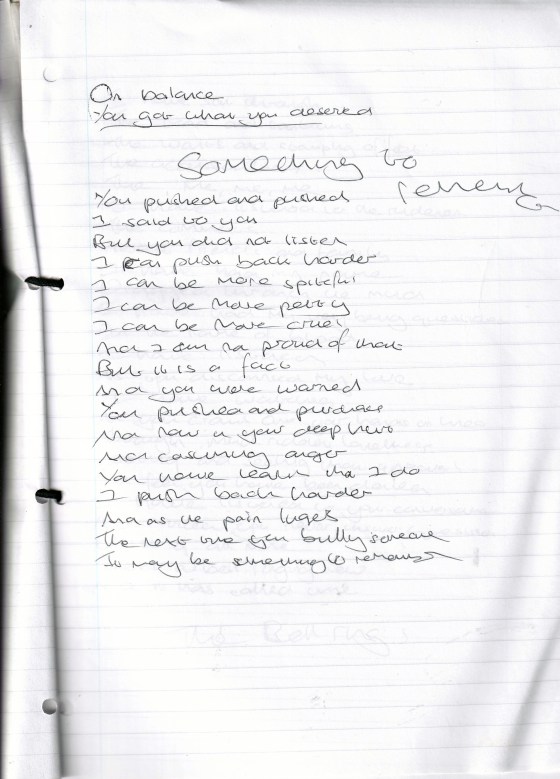 On balance
You got what you deserved
Something to
remember
You pushed and pushed
I said to you
But you did not listen
I can push back harder
I can be more spiteful
I can be more petty
I can be more cruel
And I am not proud of that
But it is a fact
And you were warned
You pushed and
And now in your deep hurt
And anger
You have learnt that I do
I push back harder
And as the pain
The next time you bully someone
It may be something to remember